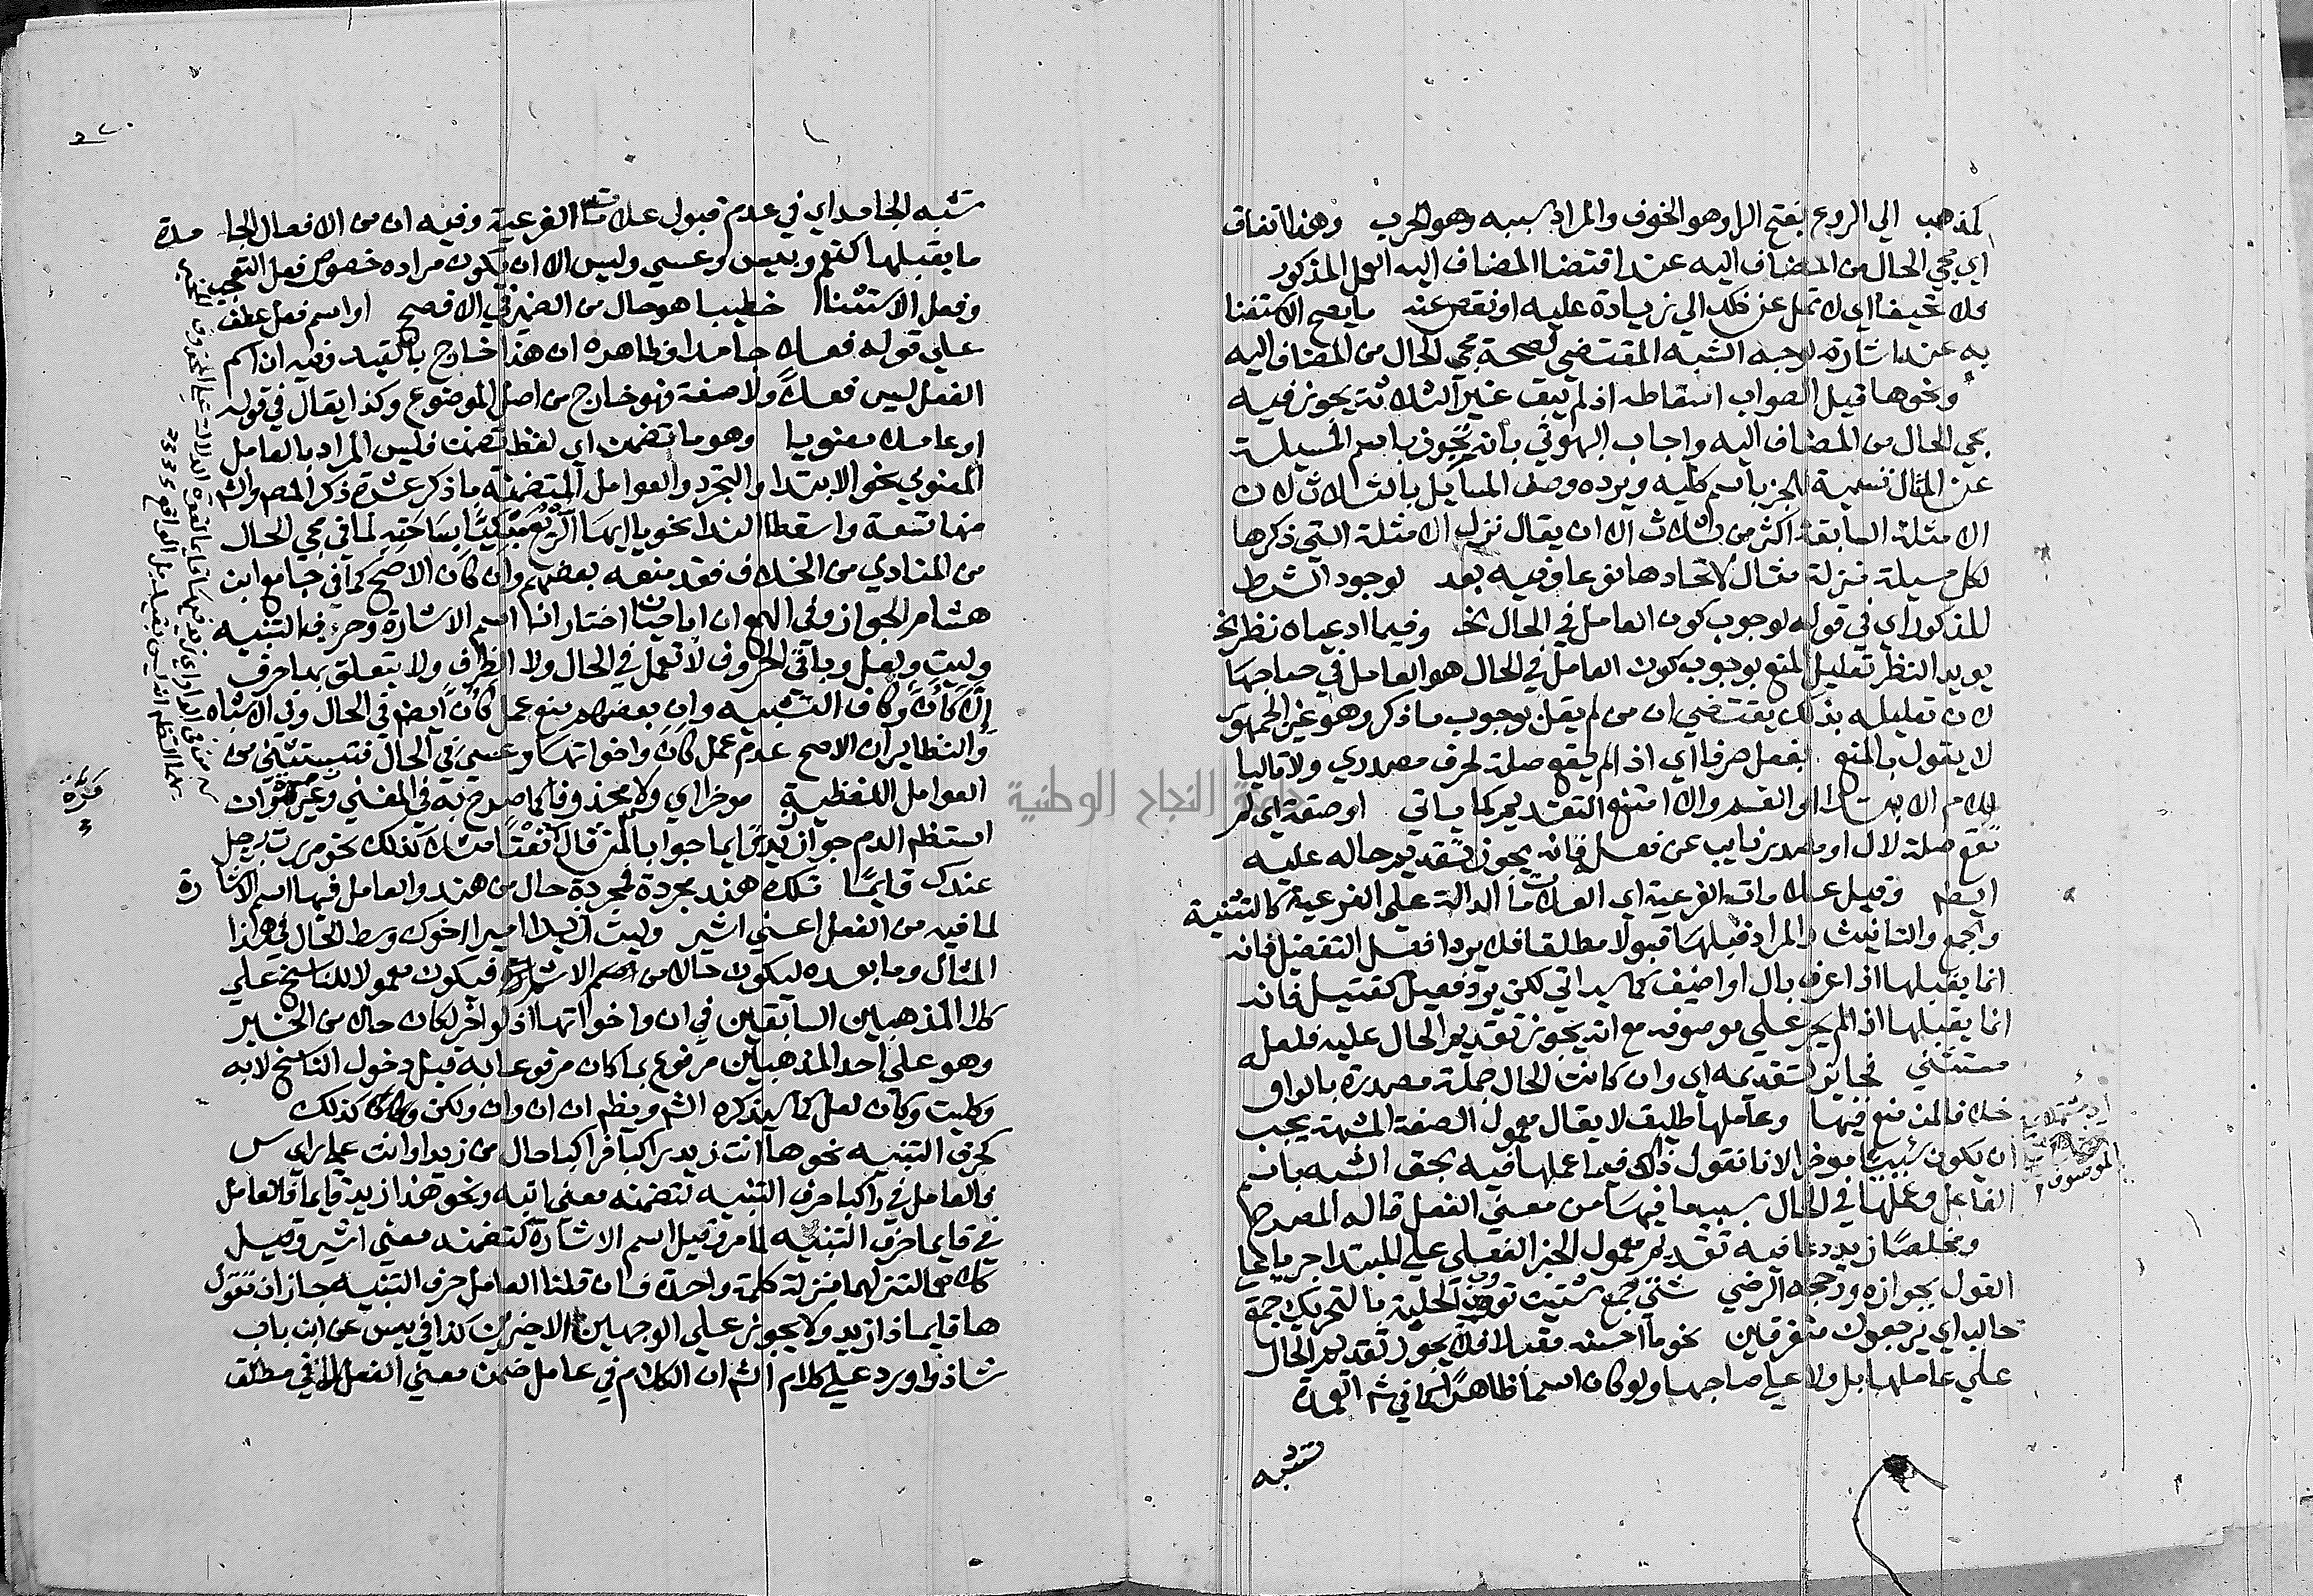 كمذهب الي الروع بفتح الرا وهو الخوف والمراد سببه وهو الحرب وهذا اتفاق
اي مجي الحال من المضاف اليه عند اقتضا المضاف اليه العمل المذكور
فلا تحيفا اي لا تمل عن ذلك الي زيادة عليه او نقص عنه ما يصح الاستغنا
به عنه اشارة لوجه الشبه المقتضي لصحة مجي الحال من المضاف اليه
ونحوها قيل الصواب اسقاطه اذ لم يبق غير الثلاثة يجوز فيه
مجي الحال من المضاف اليه واجاب البهوتي بانه تجوز باسم المسيلة
عن المثال تسمية للجز باسم كليه ويرده وصف المسايل بالثلاث لان
الامثلة السابقة اكثر من ثلاث الا ان يقال نزل الامثلة التي ذكرها
لكل مسيلة منزلة مثال لاتحادها نوعا وفيه بعد لوجود الشرط
المذكور اي في قوله لوجوب كون العامل في الحال الخ وفيما ادعياه نظر الخ
يويد النظر تعليل المنع بوجوب كون العامل في الحال هو العامل في صاحبها
لان تعليله بذلك يقتضي ان من لم يقل بوجوب ما ذكر وهو غير الجمهور
لا يقول بالمنع بفعل صرفا اي اذ لم يقع صلة لحرف مصدري ولا تاليا
للام الابتدا او القسم والا امتنع التقديم كما ياتي او صفة اي لم
تقع صلة لال او مصدر نايب عن فعله فانه يجوز تقديم حاله عليه
ايضا وقبل علامات الفرعية اي العلامات الدالة على الفرعية كالتثنية
والجمع والتانيث والمراد قبلها قبولا مطلقا فلا يرد افعل التفضيل فانه
انما يقبلها اذا عرف بال او اضيف كما سياتي لكن يرد فعيل كقتيل فانه
انما يقبلها اذا لم يجر على موصوفه مع انه يجوز تقديم الحال عليه فلعله
مستثني فجايز تقديمه اي وان كانت الحال جملة مصدرة بالواو
خلافا لمن منع فيها وعاملها طليق لا يقال معمول الصفة المشبهة يجب
ان يكون سببيا موخرا لانا نقول ذاك فيما عملها فيه بحق الشبه باسم
الفاعل وعملها في الحال بسبب ما فيها من معني الفعل قاله المصرح
ومخلصا زيد دعا فيه تقديم معمول الخبر الفعلي علي المبتدا جريا على
القول بجوازه ورجحه الرضي شتي جمع شتيت توب الحلبة بالتحريك جمع
حالب اي يرجعون متفرقين نحو ما احسنه مقبلا فلا يجوز تقديم الحال
علي عاملها بل ولا علي صاحبها ولو كان اسما ظاهرا كما في شم العمدة
تشبه
الموصوف
شبه الجامد اي في عدم قبول علامات الفرعية وفيه ان من الافعال الجامدة
ما يقبلها كنعم وبيس وعسي وليس الا ان يكون مراده خصوص فعل التعجب
وفعل الاستثنا خطيبا هو حال من الضمير في الافصح او اسم فعل عطف
علي قوله فعلا جامدا فظاهره ان هذا خارج بالقيد وفيه ان اسم
الفعل ليس فعلا ولا صفة فهو خارج من اصل الموضوع وكذا يقال في قوله
او عاملا معنويا وهو ما تضمن اي لفظ تضمن فليس المراد بالعامل
المعنوي نحو الابتدا والتجرد والعوامل المتضمنة ما ذكر عشرة ذكر المص والش
منها تسعة واسقطا الندا نحو يا ايها الربع مبكيا بساحته لما في مجي الحال
من المنادي من الخلاف فقد منعه بعضهم وان كان الاصح كما في جامع ابن
هشام الجواز وفي الهمع ان ابا حيان اختار انا اسم الاشارة وحرف التنبيه
وليت ولعل وباقي الحروف لا تعمل في الحال ولا الظرف ولا يتعلق بها حرف
الا كان وكاف التشبيه وان بعضهم منع عمل كان ايضا في الحال وفي الاشباه
والنظاير ان الاصح عدم عمل كان واخواتها وعسي في الحال فتستثني من
العوامل اللفظية موخرا اي ولا محذوفا كما صرح به في المغني وغيره وان
استظهر الدم جواز زيد قايما جوابا لمن قال كيف مثلا كذلك نحو مررت برجل
عندك قايما تلك هند مجردة فمجردة حال من هند والعامل فيها اسم الاشارة
لما فيه من الفعل اعني اشير وليت زيدا اميرا اخوك وسط الحال في هذا
المثال وما بعده ليكون حالا من اسم الاشارة فيكون معمولا للناسخ علي
كلا المذهبين السابقين في ان واخواتها اذ لو اخر لكان حالا من الخبر
وهو علي احد المذهبين مرفوع بما كان مرفوعا به قبل دخول الناسخ لا به
وكليت وكان لعل كما سيذكره الش ويظهر ان ان وان ولكن كذلك
كحرف التنبيه نحو ها انت زيد راكبا فراكبا حال من زيد او انت علي راي س
فالعامل في راكبا حرف التنبيه لتضمنه معني انبه ونحو هذا زيد قايما فالعامل
في قايما حرف التنبيه لما مر وقيل اسم الاشارة لتضمنه معني اشير وقيل
كلاهما لتنزلهما منزلة كلمة واحدة فان قلنا العامل حرف التنبيه جاز ان تقول
ها قايما ذا زيد ولا يجوز علي الوجهين الاخيرين كذا في يس عن ابن باب
شاذ واورد علي كلام الش ان الكلام في عامل ضمن معني الفعل لا في مطلق
جامعة النجاح الوطنية